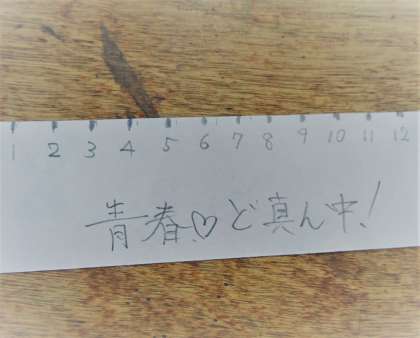 1 2 3 4 5 6 7 8 9 10 11 12
青春♡ど真ん中!